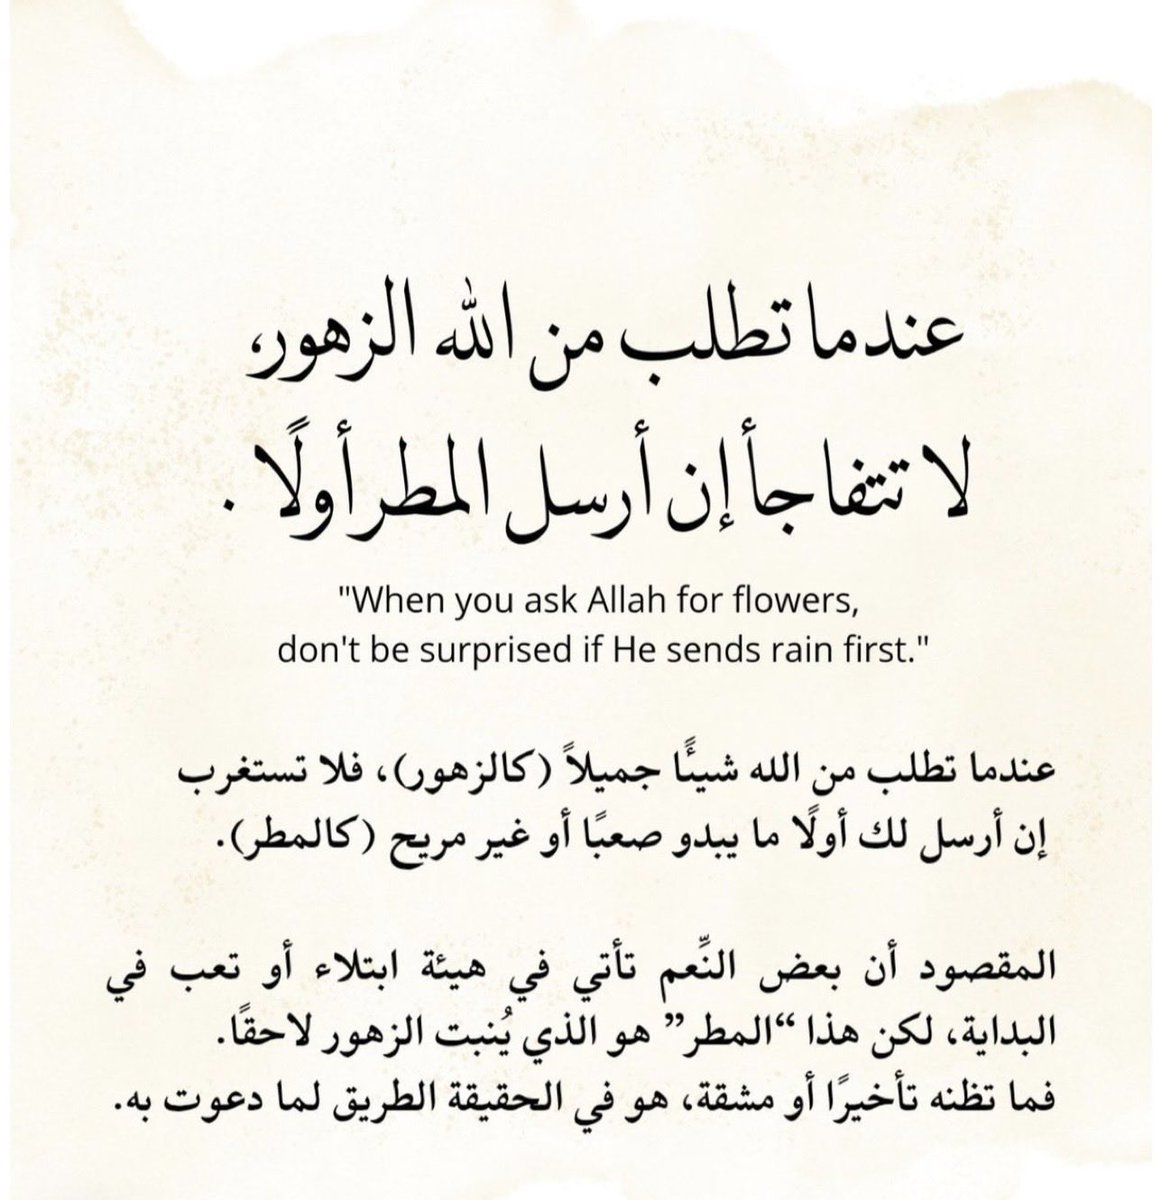 عندما تطلب من الله الزهور،
لا تتفاجأ إن أرسل المطر أولًا .
"When you ask Allah for flowers,
don't be surprised if He sends rain first."
عندما تطلب من الله شيئًا جميلاً (كالزهور)، فلا تستغرب
إن أرسل لك أولًا ما يبدو صعبًا أو غير مريح (كالمطر).
المقصود أن بعض النِّعم تأتي في هيئة ابتلاء أو تعب في
البداية، لكن هذا “المطر” هو الذي يُنبت الزهور لاحقًا.
فما تظنه تأخيرًا أو مشقة، هو في الحقيقة الطريق لما دعوت به.